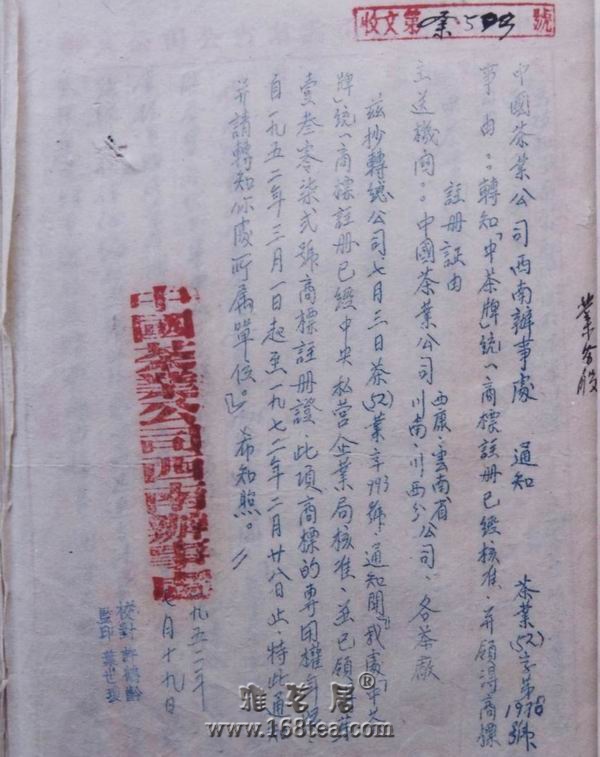 收文第 業503 號
業務股
中國茶業公司西南辦事處 通知 茶業(52)字第1978號
事由：轉知「中茶牌」統一商標註冊已經核准，并領得商標
註册証由
主送機関：中國茶業公司 西康、雲南省 川南、川西分公司、各茶廠
茲抄轉總公司七月三日茶(52)業字793號通知開「我處"中茶
牌"統一商標註冊已經中央私营企業局核准、並已領得第
壹叁零柒弍號商標註冊證、此項商標的專用權年限
自一九五二年三月一日起至一九七二年二月廿八日止、特此通知
并請轉知你處所屬單位。」希知照。
中國茶業公司西南辦事處
一九五二年
七月十九日
校對
監印 葉世
雅茗居®
www.168tea.com